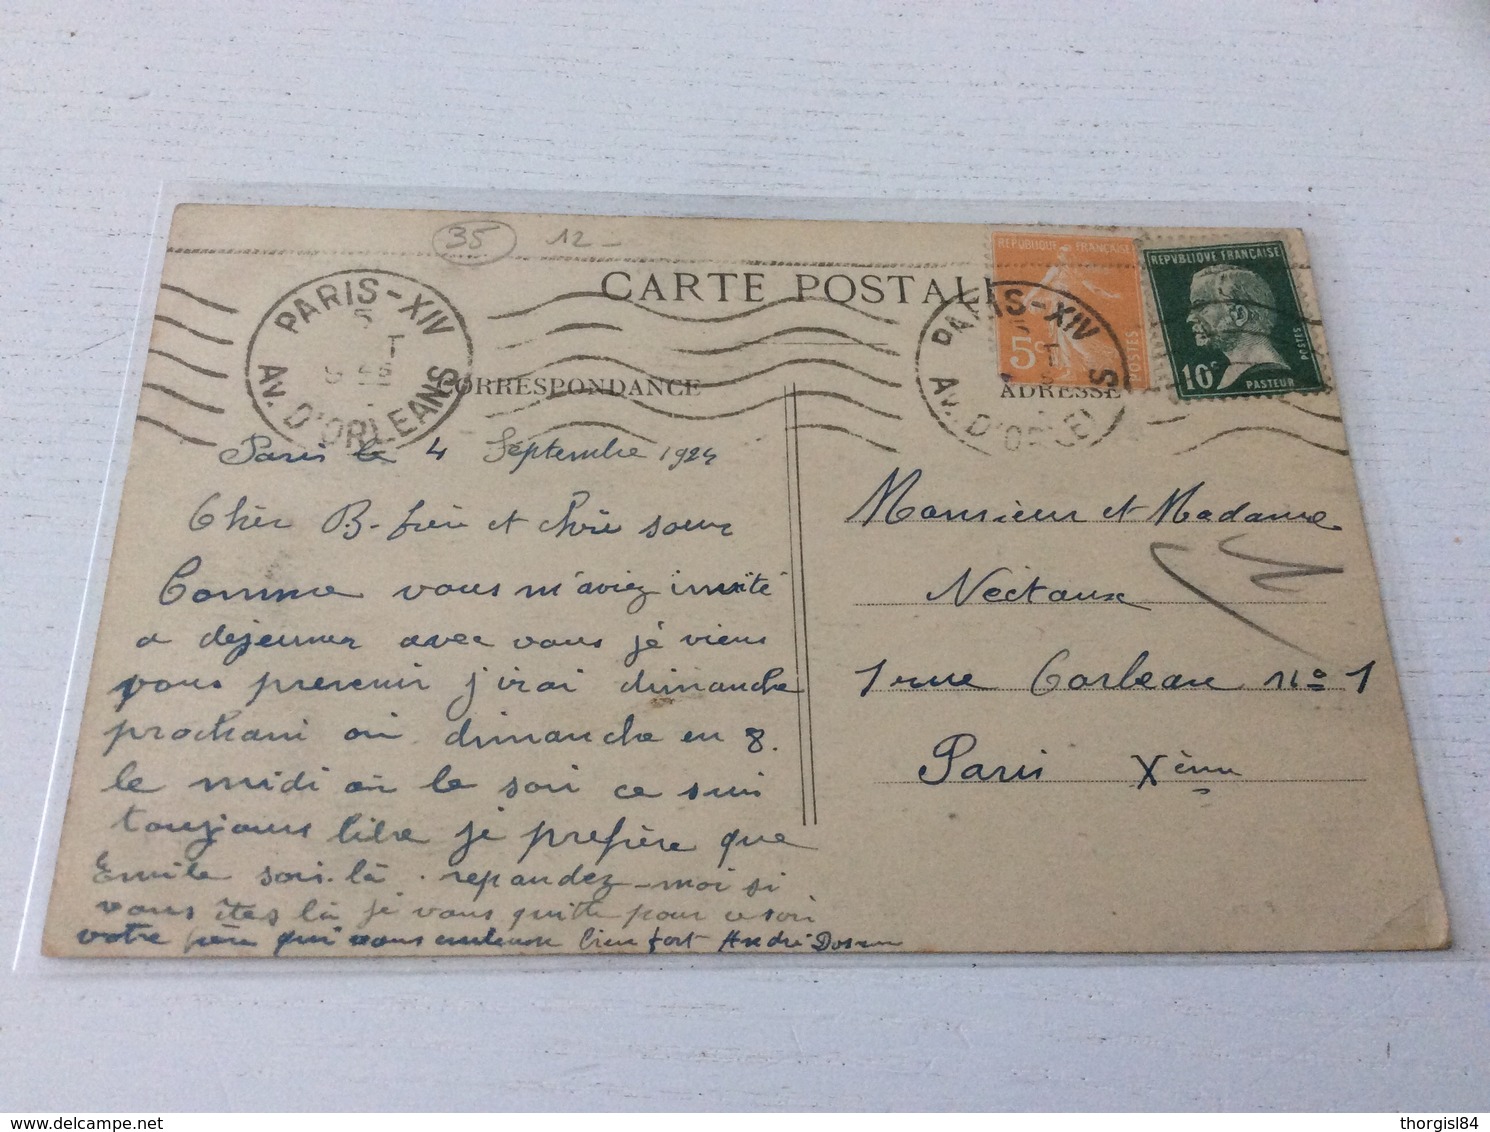 35 12-
CARTE POSTALE
REPUBLIQUE FRANÇAISE
5c
POSTES
REPVBLIQVE FRANÇAISE
10c
POSTES
PASTEUR
PARIS-XIV
AV. D'ORLEANS
PARIS-XIV
AV. D'ORLE S
CORRESPONDANCE
ADRESSE
Paris le 4 Septembre 1924
Cher B-frèr et chère sœur
Comme vous m'aviez invité
a dejeuner avec vous je viens
vous prevenir j'irai dimanche
prochain ou dimanche en 8.
le midi ou le soir ce suis
toujours libre je prefère que
Emile soir là. repondez-moi si
vous êtes là je vous quitte pour ce soir
votre frère qui vous embrasse bien fort André
Monsieur et Madame
Nectoux
1 rue Corbeau no 1
Paris Xème
thorgisl84